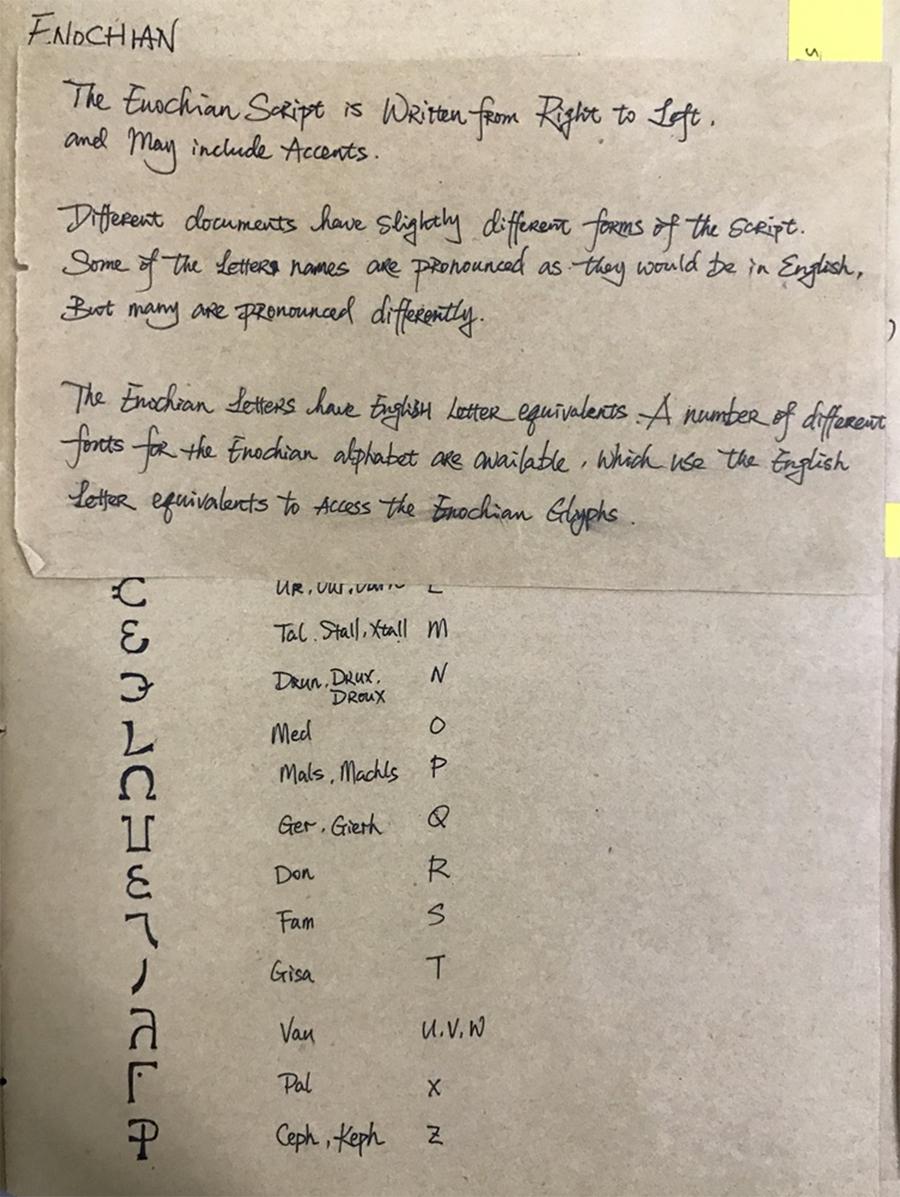 ENOCHIAN
S
The Enochian Script is Written from Right to Left,
and May include Accents.
Different documents have slightly different forms of the script.
Some of the letters names are pronounced as they would be in English,
But many are pronounced differently.
The Enochian Letters have English Letter equivalents. A number of different
fonts for the Enochian alphabet are available, which use the English
Letter equivalents to Access the Enochian Glyphs.
Tal, Stall, Xtall M
Drun, Drux, Droux N
Med O
Mals, Machls P
Ger, Gierh Q
Don R
Fam S
Gisa T
Vau U,V,W
Pal X
Ceph, Keph Z